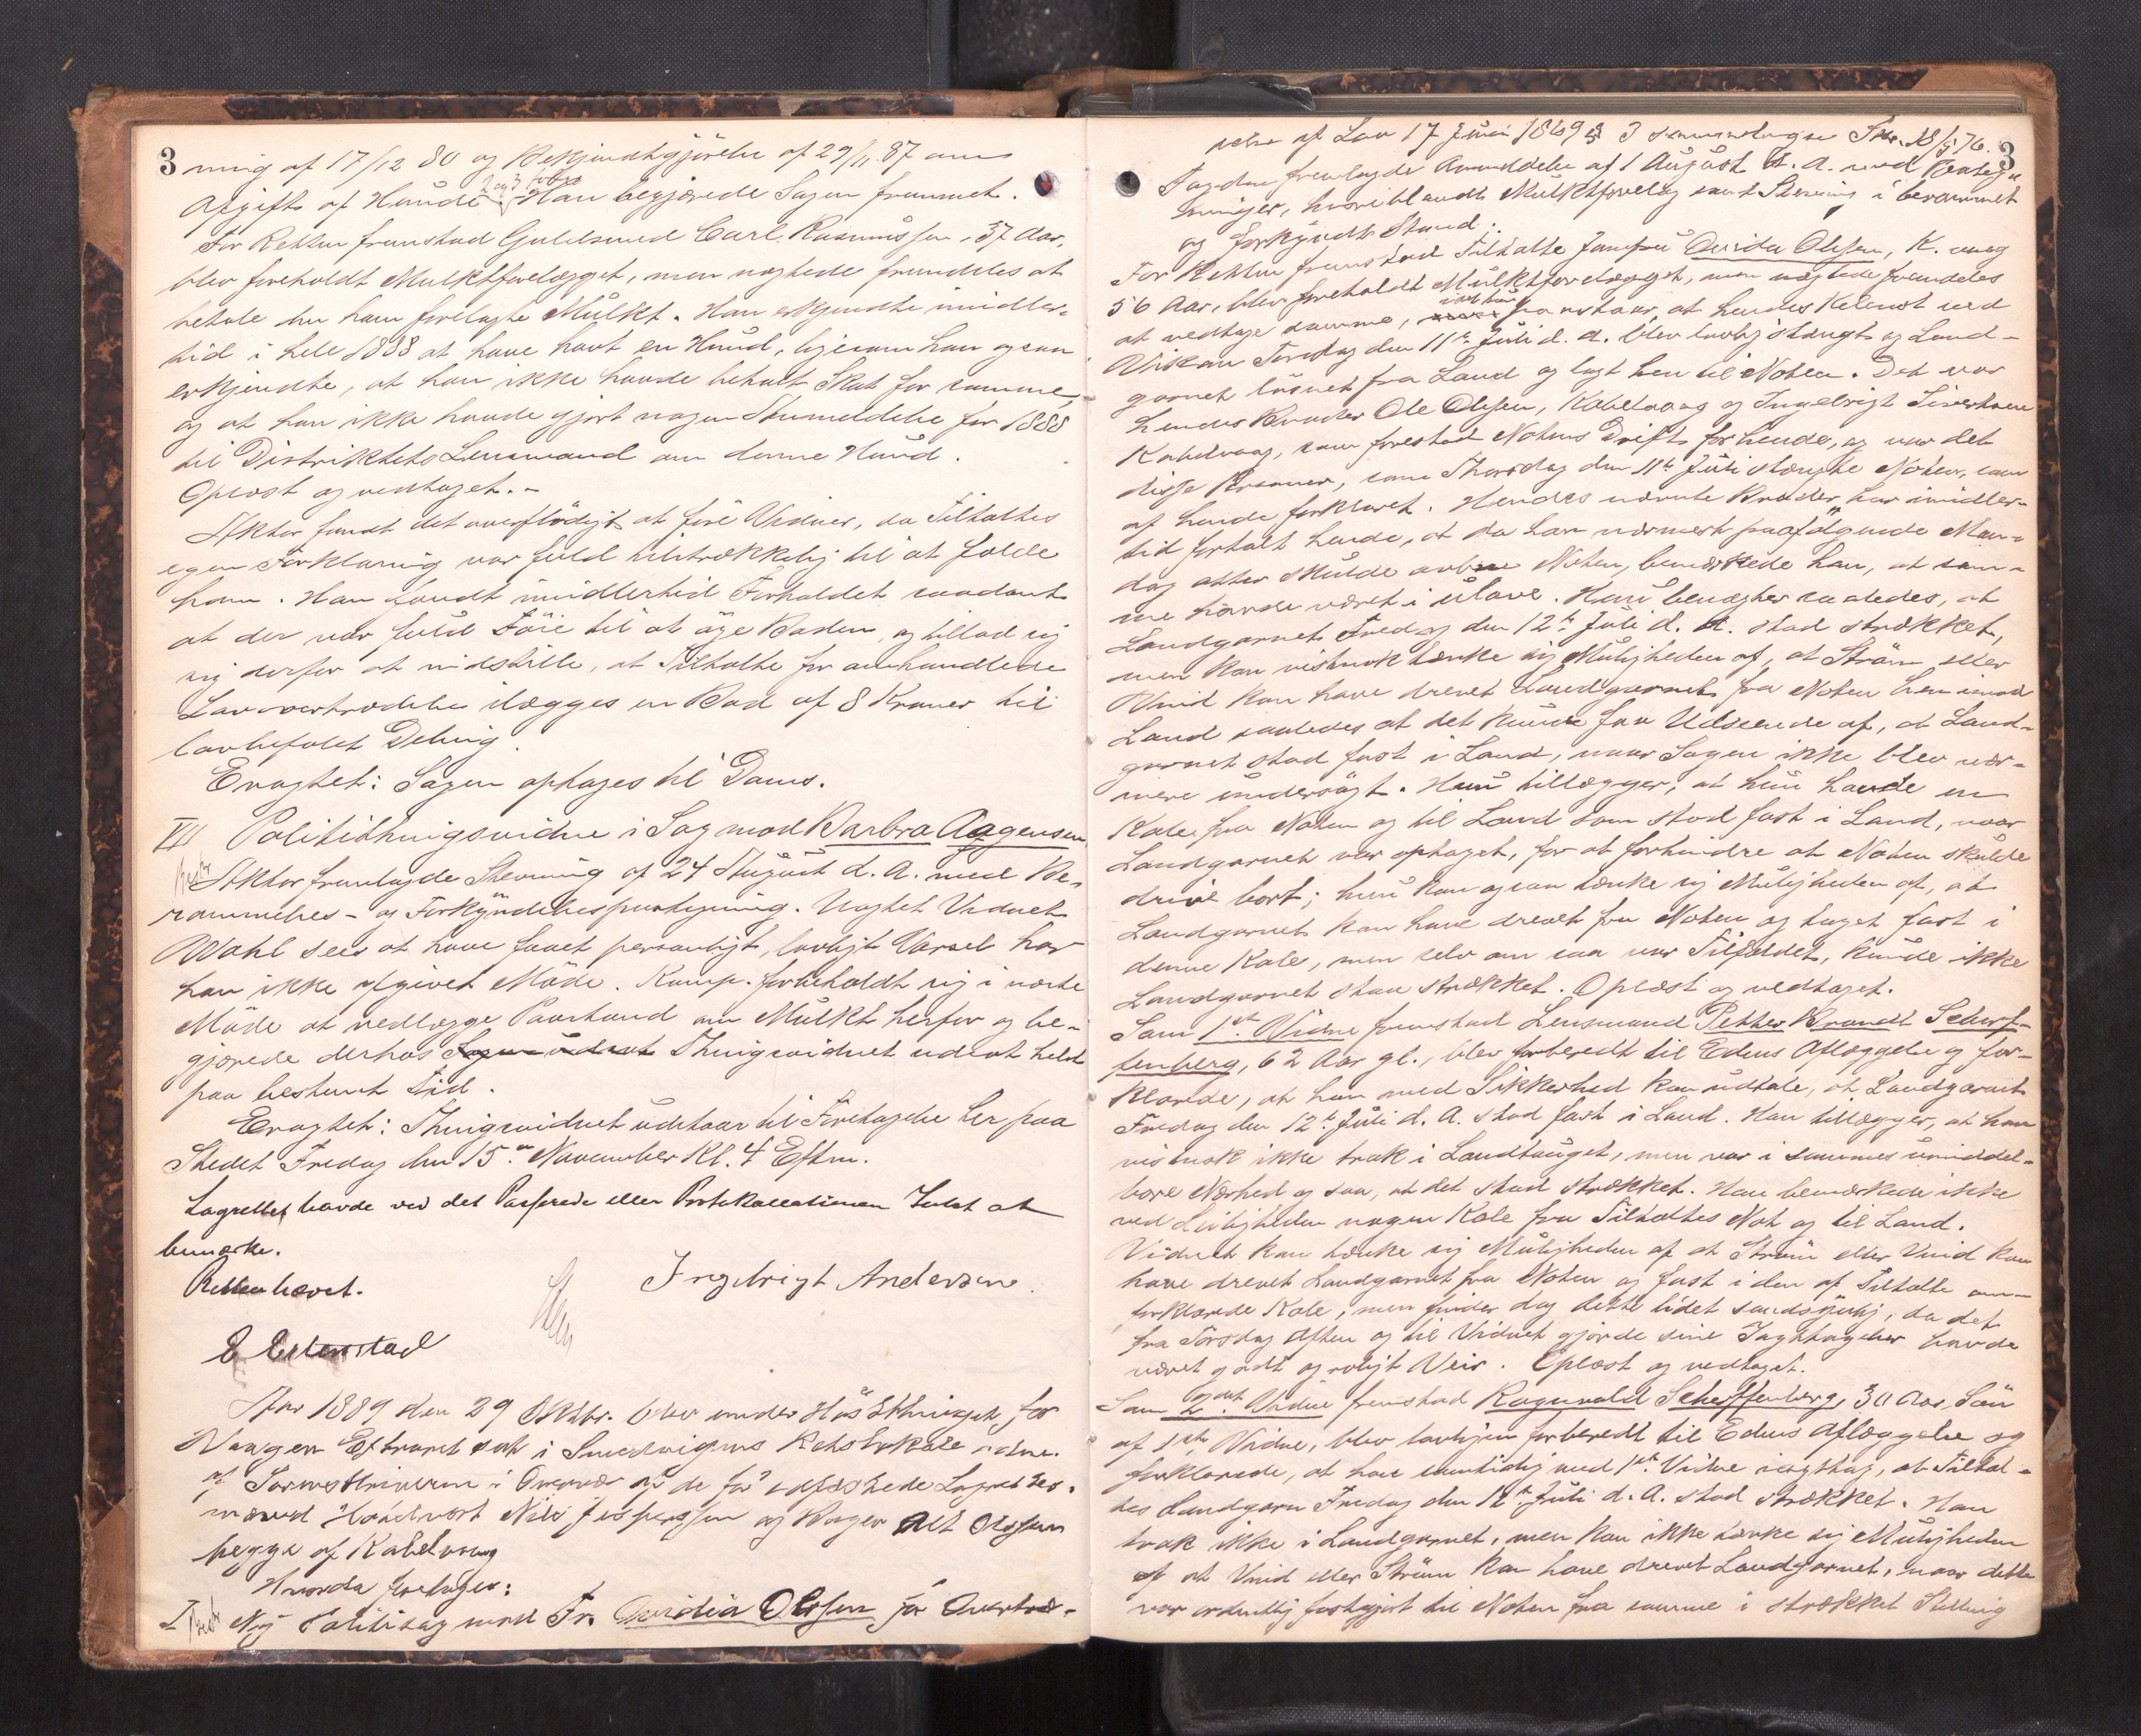 3
ning af 17/12 80 og Bekjendtgjørelse af 29/11 87 om
Afgift af Hunde. Han begjærede Sagen fremmet.
For Retten fremstod Guldsmed Carl Rasmussen, 37 Aar,
blev foreholdt Mulktforelægget, men nægtede fremdeles at
betale den ham forelagte Mulkt. Han erkjendte imidler-
tid i hele 1888 at have havt en Hund, ligesom han ogsaa
erkjendte, at han ikke havde betalt Skat for samme,
og at han ikke havde gjort nogen Anmeldelse for 1888
til Distriktets Lensmand om denne Hund.
Oplæst og vedtaget.-
Aktor fandt det overflødigt at føre Vidner, da Tiltaltes
egen Forklaring var fuld tilstrækkelig til at fælde
ham. Han fandt imidlertid Forholdet saadant
at der var fuld Føie til at øge Boden, og tillod sig
sig derfor at indstille, at Tiltalte for omhandlede
Lovovertrædelse ilægges en Bod af 8 Kroner til
lovbefalet Deling.
Eragtet: Sagen optages til Doms.
VII Politithingsvidne i Sag mod Barbra Aagensen
Aktor fremlagde Stevning af 24 August d. A. med Be-
rammelses- og Forkyndelsespaategning. Uagtet Vidnet
Wahl sees at have faaet personligt, lovligt Varsel har
han ikke afgivet Møde. Komp. forbeholdt sig i næste
Møde at nedlægge Paastand om Mulkt herfor og be-
gjærede derhos Sagen udsat Thingsvidnet udsat helst
paa bestemt Tid.
Eragtet: Thingsvidnet udstaar til Foretagelse her paa
Stedet Fredag den 15de November Kl. 4 Eftm.
Lagrettet havde ved det Passerede eller Protokollationen Intet at
bemærke.
Retten hævet.
Ingebrigt Andersen
Aar 1889 den 29 Oktbr. blev under Høstthinget for
Vaagen Extraret sat i Svolværgens Retslokale
af Sorenskriveren i Overvær af de før edfæstede Lagrettes-
mænd Nils Jespersen og Olsen
begge af Kabelvaag
Hvorda foretages:
I Ny Politisag mod Fr. Avidia Olsen for Overtræ-
3
delse af Lov 17 Juni 1869 § 3 sammenlagne 18/5 76.
Fogden fremlagde Anmeldelse af 1 August d. A. med Paateg-
ninger, hvoriblandt Mulktforelæg samt Stevning i berammet
og forkyndt Stand.
For Retten fremstod Tiltalte Jomfru Avida Olsen, K. vaag
56 Aar, blev foreholdt Mulktforelægget, men nægtede fremdeles
at vedtage samme, idet hun paastaar, at hendes Kastenot ved
Torsdag den 11te Juli d. A. blev lovlig stængt og Land-
garnet løsnet fra Land og lagt hen til Noten. Det var
hendes Broder Ole Olsen, Kabelvaag og Ingebrigt
Kabelvaag, som forestod Notens Drift for hende, og var det
disse Personer, som Thorsdag den 11te Juli stængte Noten, som
af hende forklaret. Hendes nævnte Broder har imidler-
tid fortalt hende, at da han nærmest paafølgende Man-
dag atter skulde Noten, bemærkede han, at sam-
me havde været i ulave. Hun benægter saaledes, at
Landgarnet Fredag den 12te Juli d. A. stod strækket,
men kan vistnok tænke sig Muligheden af, at Strøm eller
Vind kan have drevet Landgarnet fra Noten hen imod
Land saaledes at det kunde faa Udseende af, at Land-
garnet stod fast i Land, naar Sagen ikke blev nær-
mere undersøgt. Hun tillægger, at hun havde en
Kale fra Noten og til Land som stod fast i Land, naar
Landgarnet var optaget, for at forhindre at Noten skulde
drive bort; hun kan ogsaa tænke sig Muligheden af, at
Landgarnet kan have drevet fra Noten og taget fast i
denne Kale, men selv om saa var Tilfældet, kunde ikke
Landgarnet staa strækket. Oplæst og vedtaget.
Som 1ste Vidne fremstod Lensmand Petter Brandt Scherf-
fenberg, 62 Aar gl., blev forberedt til Edens Aflæggelse og for-
klarede, at han med Sikkerhed kan udtale, at Landgarnet
Fredag den 12te Juli d. A. stod fast i Land. Han tillægger, at han
vistnok ikke trak i Landtauget, men var i sammes umiddel-
bare Nærhed og saa, at det stod strækket. Han bemærkede ikke
ved Leiligheden nogen Kale fra Tiltaltes Not og til Land.
Vidnet kan tænke sig Muligheden af at Strøm eller Vind kan
have drevet Landgarnet fra Noten og fast i den af Tiltalte om-
forklarede Kale, men finder dog dette lidet sandsynlig, da det
fra Torsdag Aften og til Vidnet gjorde sine Iagttagelser havde
været godt og roligt Veir. Oplæst og vedtaget.
Som 2det Vidne fremstod Ragnvald Scheffenberg, 30 Aar, Søn
af 1ste Vidne, blev lovligen forberedt til Edens Aflæggelse og
forklarede, at han samtidig med 1ste Vidne iagttog, at Tiltal-
des Landgarn Fredag den 12te Juli d. A. stod strækket. Han
trak ikke i Landgarnet, men kan ikke tænke sig Muligheden
af at Vind eller Strøm kan have drevet Landgarnet, naar dette
var ordentlig fastgjort til Noten fra samme i strækket Stilling